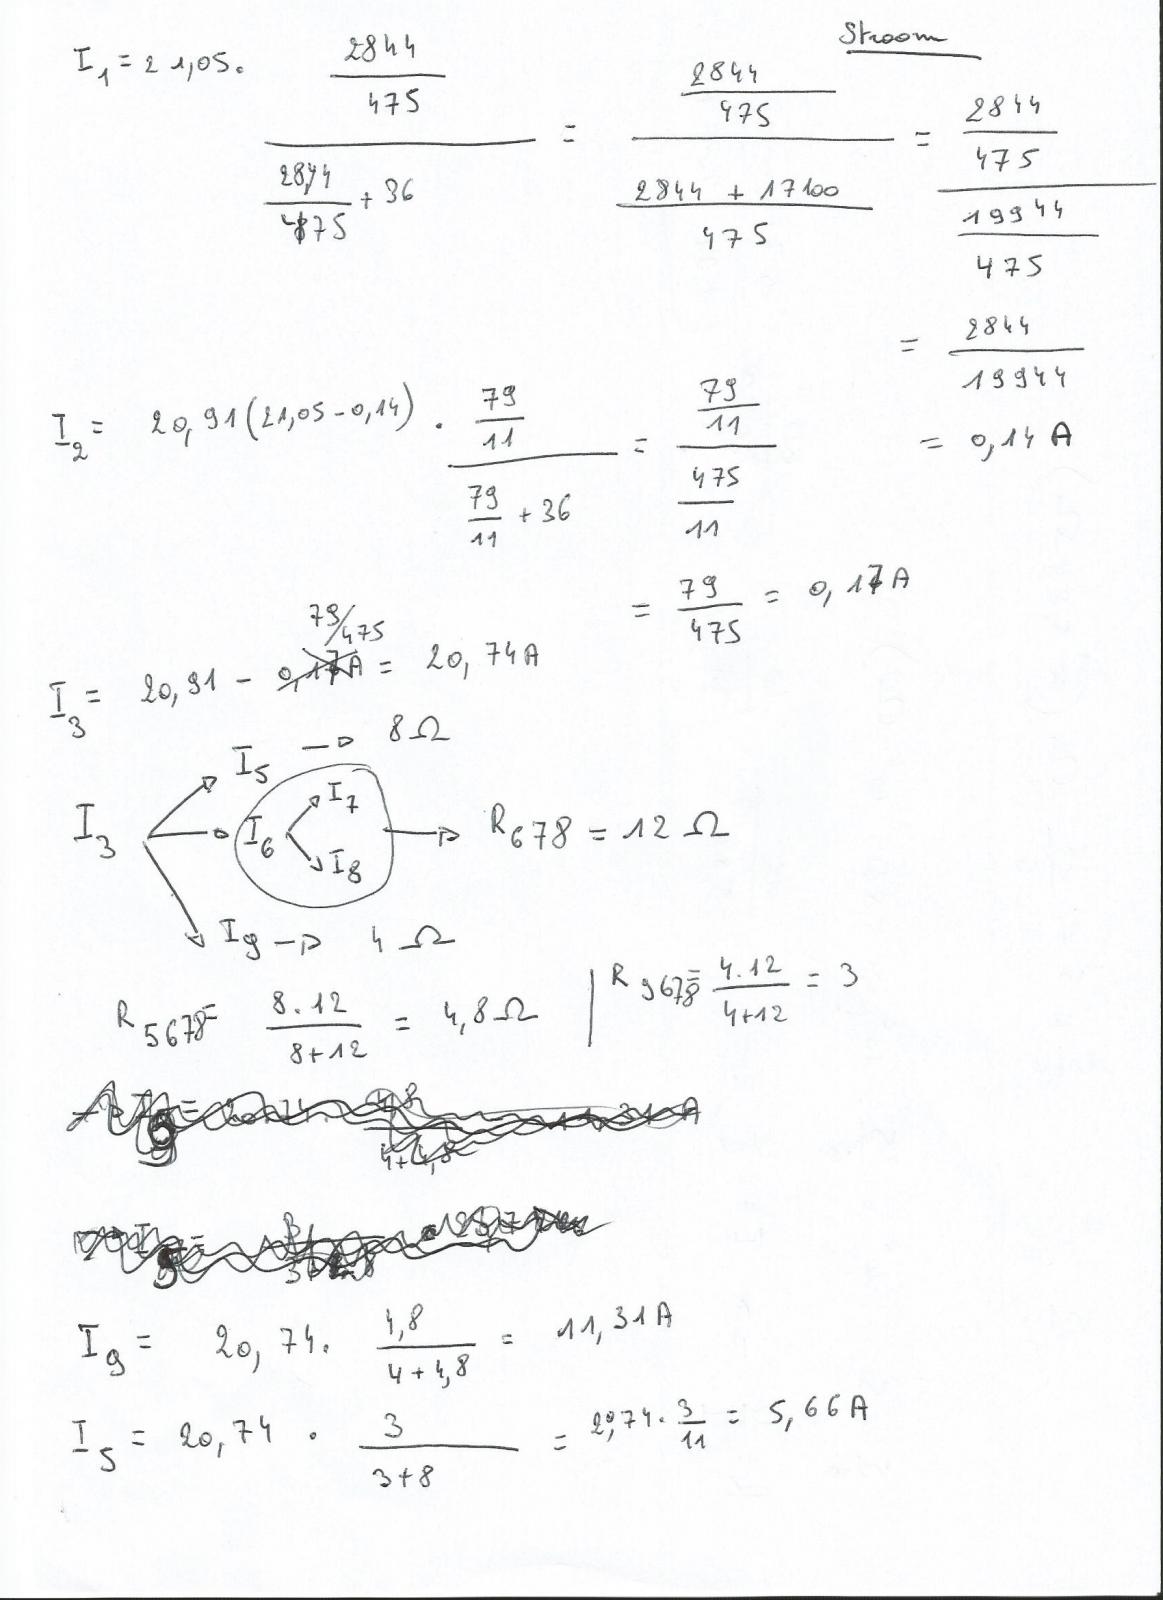 Stroom
I1 = 21,05 . (2844/475) / (2844/475 + 36) = (2844/475) / ((2844 + 17100)/475) = (2844/475) / (19944/475)
= 2844/19944
= 0,14 A
I2 = 20,91 (21,05 - 0,14) . (79/11) / (79/11 + 36) = (79/11) / (475/11)
= 79/475 = 0,17 A
79/475
I3 = 20,91 - 0,17A = 20,74A
I5 → 8 Ω
I3 → I6 → I7 I8 → R678 = 12 Ω
I9 → 4 Ω
R5678 = 8.12 / 8+12 = 4,8 Ω | R9678 = 4.12 / 4+12 = 3
I9 = 20,74 . 4,8 / 4+4,8 = 11,31 A
I5 = 20,74 . 3 / 3+8 = 20,74 . 3/11 = 5,66 A